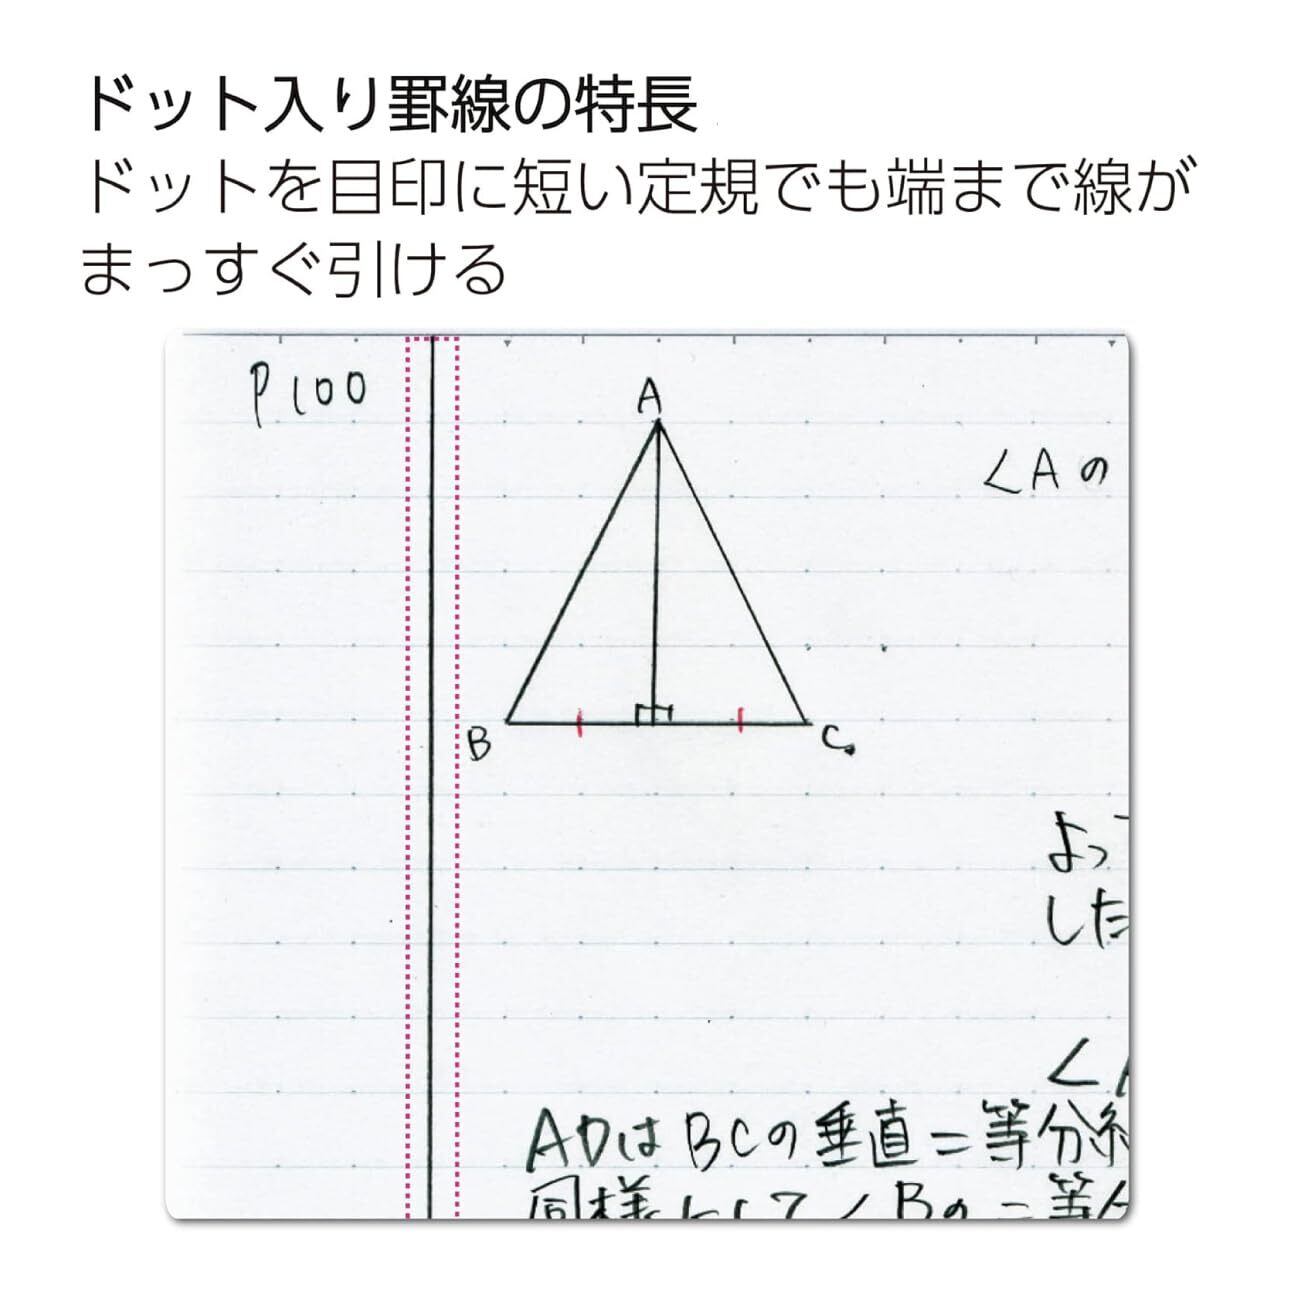 ドット入り罫線の特長
ドットを目印に短い定規でも端まで線が
まっすぐ引ける
P100
A
∠Aの
B
C
よっ
した
∠
ADはBCの垂直二等分
同様にして∠Bの二等